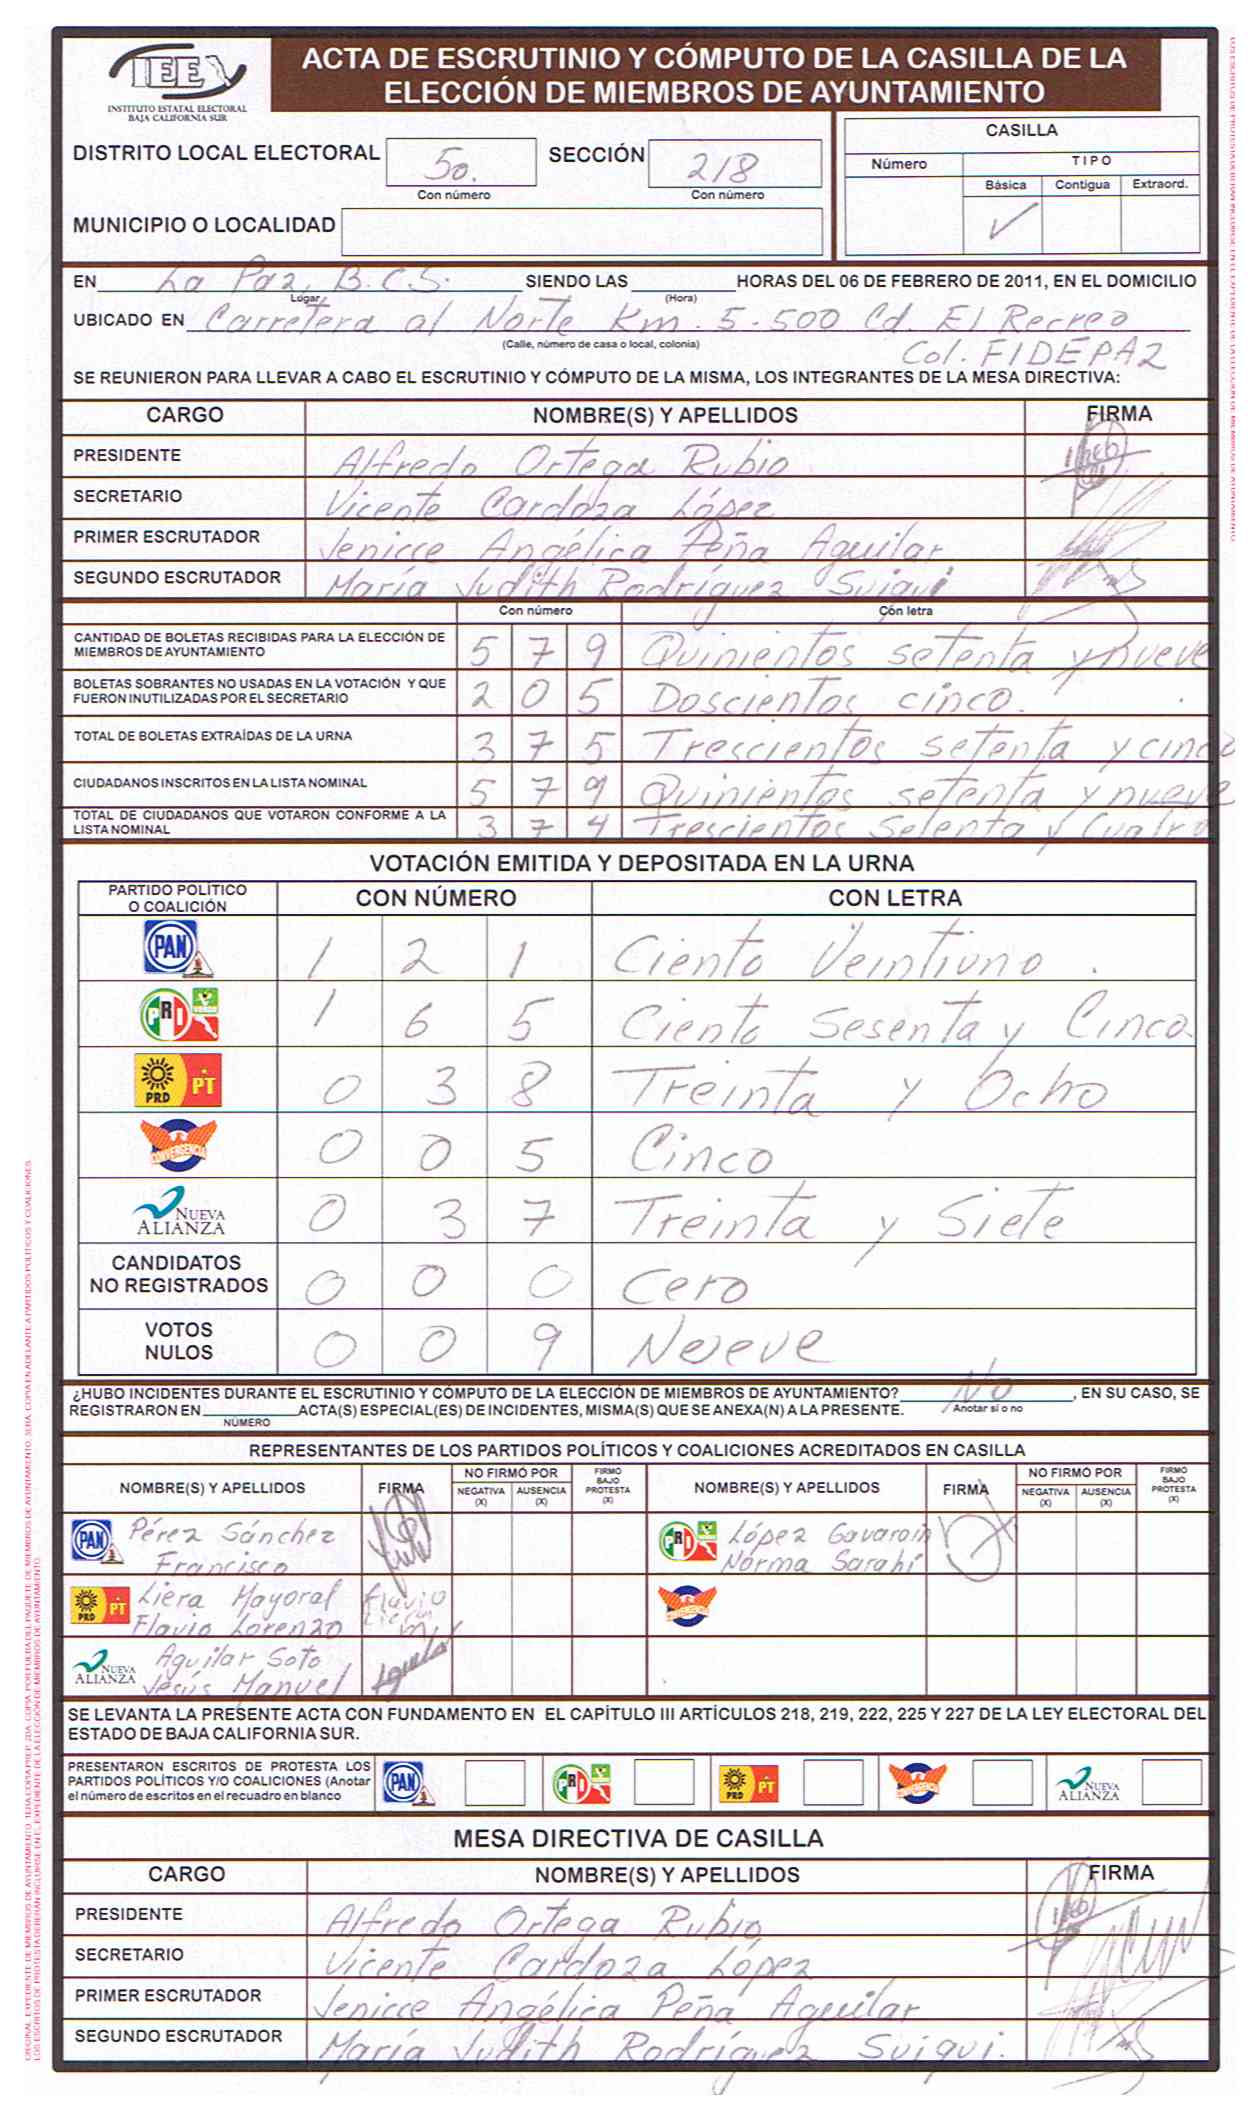 IEE
INSTITUTO ESTATAL ELECTORAL
BAJA CALIFORNIA SUR
ACTA DE ESCRUTINIO Y CÓMPUTO DE LA CASILLA DE LA
ELECCIÓN DE MIEMBROS DE AYUNTAMIENTO
DISTRITO LOCAL ELECTORAL 5o. SECCIÓN 218
Con número Con número
MUNICIPIO O LOCALIDAD
CASILLA
Número TIPO
Básica Contigua Extraord.
✓
EN La Paz, B.C.S. SIENDO LAS HORAS DEL 06 DE FEBRERO DE 2011, EN EL DOMICILIO
Lugar (Hora)
UBICADO EN Carretera al Norte Km. 5-500 Cd. El Recreo
(Calle, número de casa o local, colonia) Col. FIDEPAZ
SE REUNIERON PARA LLEVAR A CABO EL ESCRUTINIO Y CÓMPUTO DE LA MISMA, LOS INTEGRANTES DE LA MESA DIRECTIVA:
CARGO NOMBRE(S) Y APELLIDOS FIRMA
PRESIDENTE Alfredo Ortega Rubio
SECRETARIO Vicente Cardoza López
PRIMER ESCRUTADOR Jenicce Angélica Peña Aguilar
SEGUNDO ESCRUTADOR María Judith Rodríguez Suiqui
Con número Con letra
CANTIDAD DE BOLETAS RECIBIDAS PARA LA ELECCIÓN DE
MIEMBROS DE AYUNTAMIENTO 5 7 9 Quinientos setenta y nueve
BOLETAS SOBRANTES NO USADAS EN LA VOTACIÓN Y QUE
FUERON INUTILIZADAS POR EL SECRETARIO 2 0 5 Doscientos cinco.
TOTAL DE BOLETAS EXTRAÍDAS DE LA URNA 3 7 5 Trescientos setenta y cinco
CIUDADANOS INSCRITOS EN LA LISTA NOMINAL 5 7 9 Quinientos setenta y nueve
TOTAL DE CIUDADANOS QUE VOTARON CONFORME A LA
LISTA NOMINAL 3 7 4 Trescientos Setenta y Cuatro
VOTACIÓN EMITIDA Y DEPOSITADA EN LA URNA
PARTIDO POLÍTICO
O COALICIÓN CON NÚMERO CON LETRA
PAN 1 2 1 Ciento Veintiuno.
PRI VERDE 1 6 5 Ciento Sesenta y Cinco
PRD PT 0 3 8 Treinta y Ocho
CONVERGENCIA 0 0 5 Cinco
NUEVA ALIANZA 0 3 7 Treinta y Siete
CANDIDATOS
NO REGISTRADOS 0 0 0 Cero
VOTOS
NULOS 0 0 9 Nueve
¿HUBO INCIDENTES DURANTE EL ESCRUTINIO Y CÓMPUTO DE LA ELECCIÓN DE MIEMBROS DE AYUNTAMIENTO? No, EN SU CASO, SE
REGISTRARON EN ACTA(S) ESPECIAL(ES) DE INCIDENTES, MISMA(S) QUE SE ANEXA(N) A LA PRESENTE. Anotar sí o no
NÚMERO
REPRESENTANTES DE LOS PARTIDOS POLÍTICOS Y COALICIONES ACREDITADOS EN CASILLA
NOMBRE(S) Y APELLIDOS FIRMA NO FIRMÓ POR NEGATIVA (X) AUSENCIA (X) FIRMÓ BAJO PROTESTA (X) NOMBRE(S) Y APELLIDOS FIRMA NO FIRMÓ POR NEGATIVA (X) AUSENCIA (X) FIRMÓ BAJO PROTESTA (X)
PAN Pérez Sánchez PRI López Gavarain
Francisco Norma Sarahí
PRD PT Liera Mayoral Flavio CONVERGENCIA
Flavio Lorenzo
NUEVA ALIANZA Aguilar Soto
Jesús Manuel
SE LEVANTA LA PRESENTE ACTA CON FUNDAMENTO EN EL CAPÍTULO III ARTÍCULOS 218, 219, 222, 225 Y 227 DE LA LEY ELECTORAL DEL
ESTADO DE BAJA CALIFORNIA SUR.
PRESENTARON ESCRITOS DE PROTESTA LOS
PARTIDOS POLÍTICOS Y/O COALICIONES (Anotar
el número de escritos en el recuadro en blanco
PAN PRI PRD PT CONVERGENCIA NUEVA ALIANZA
MESA DIRECTIVA DE CASILLA
CARGO NOMBRE(S) Y APELLIDOS FIRMA
PRESIDENTE Alfredo Ortega Rubio
SECRETARIO Vicente Cardoza López
PRIMER ESCRUTADOR Jenicce Angélica Peña Aguilar
SEGUNDO ESCRUTADOR María Judith Rodríguez Suiqui.